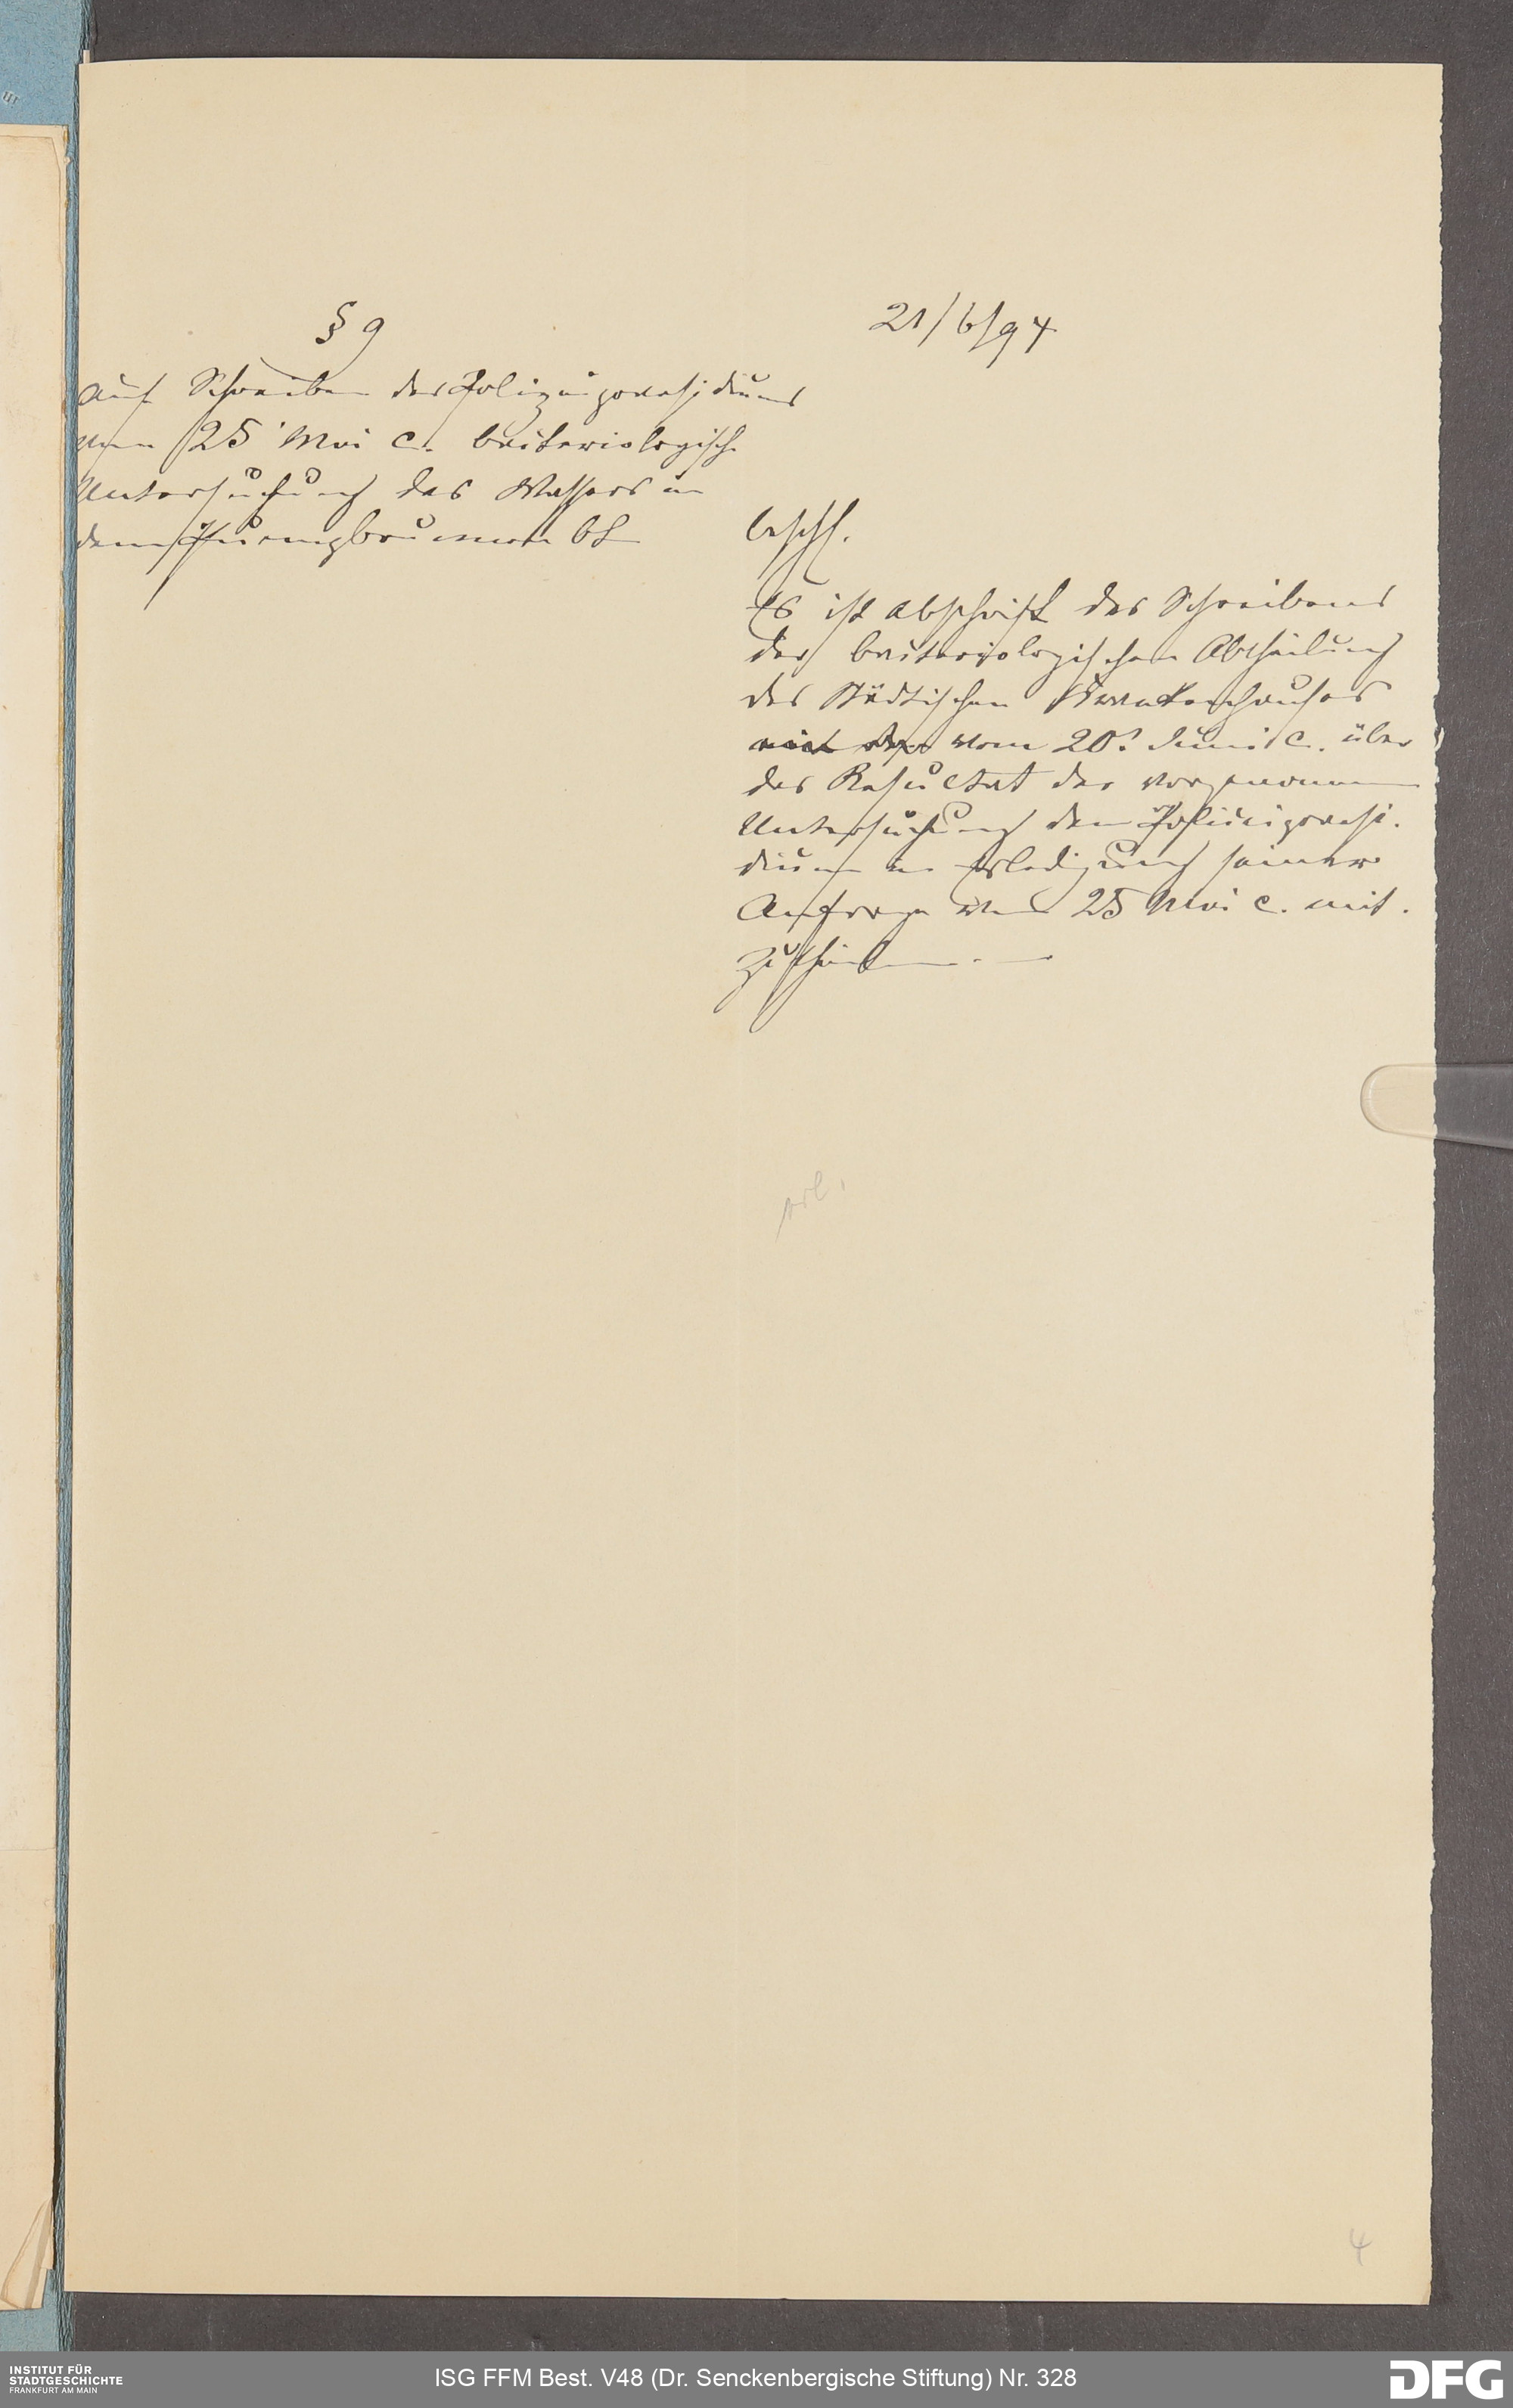 § 9
21/6/94
Auf Schreiben des Polizeipraesidiums
vom 25 Mai c. bacteriologische
Untersuchung des Wassers in
dem Pumpbrunnen
beschl.
Es ist Abschrift des Schreibens
der bacteriologischen Abtheilung
des Städtischen Krankenhauses
vom 20. Juni c. über
das Resultat der vorgenommenen
Untersuchung dem Polizeipraesi-
dium in Erledigung seiner
Anfrage vom 25 Mai c. mit-
zutheilen.
erl.
4
INSTITUT FÜR
STADTGESCHICHTE
FRANKFURT AM MAIN
ISG FFM Best. V48 (Dr. Senckenbergische Stiftung) Nr. 328
DFG